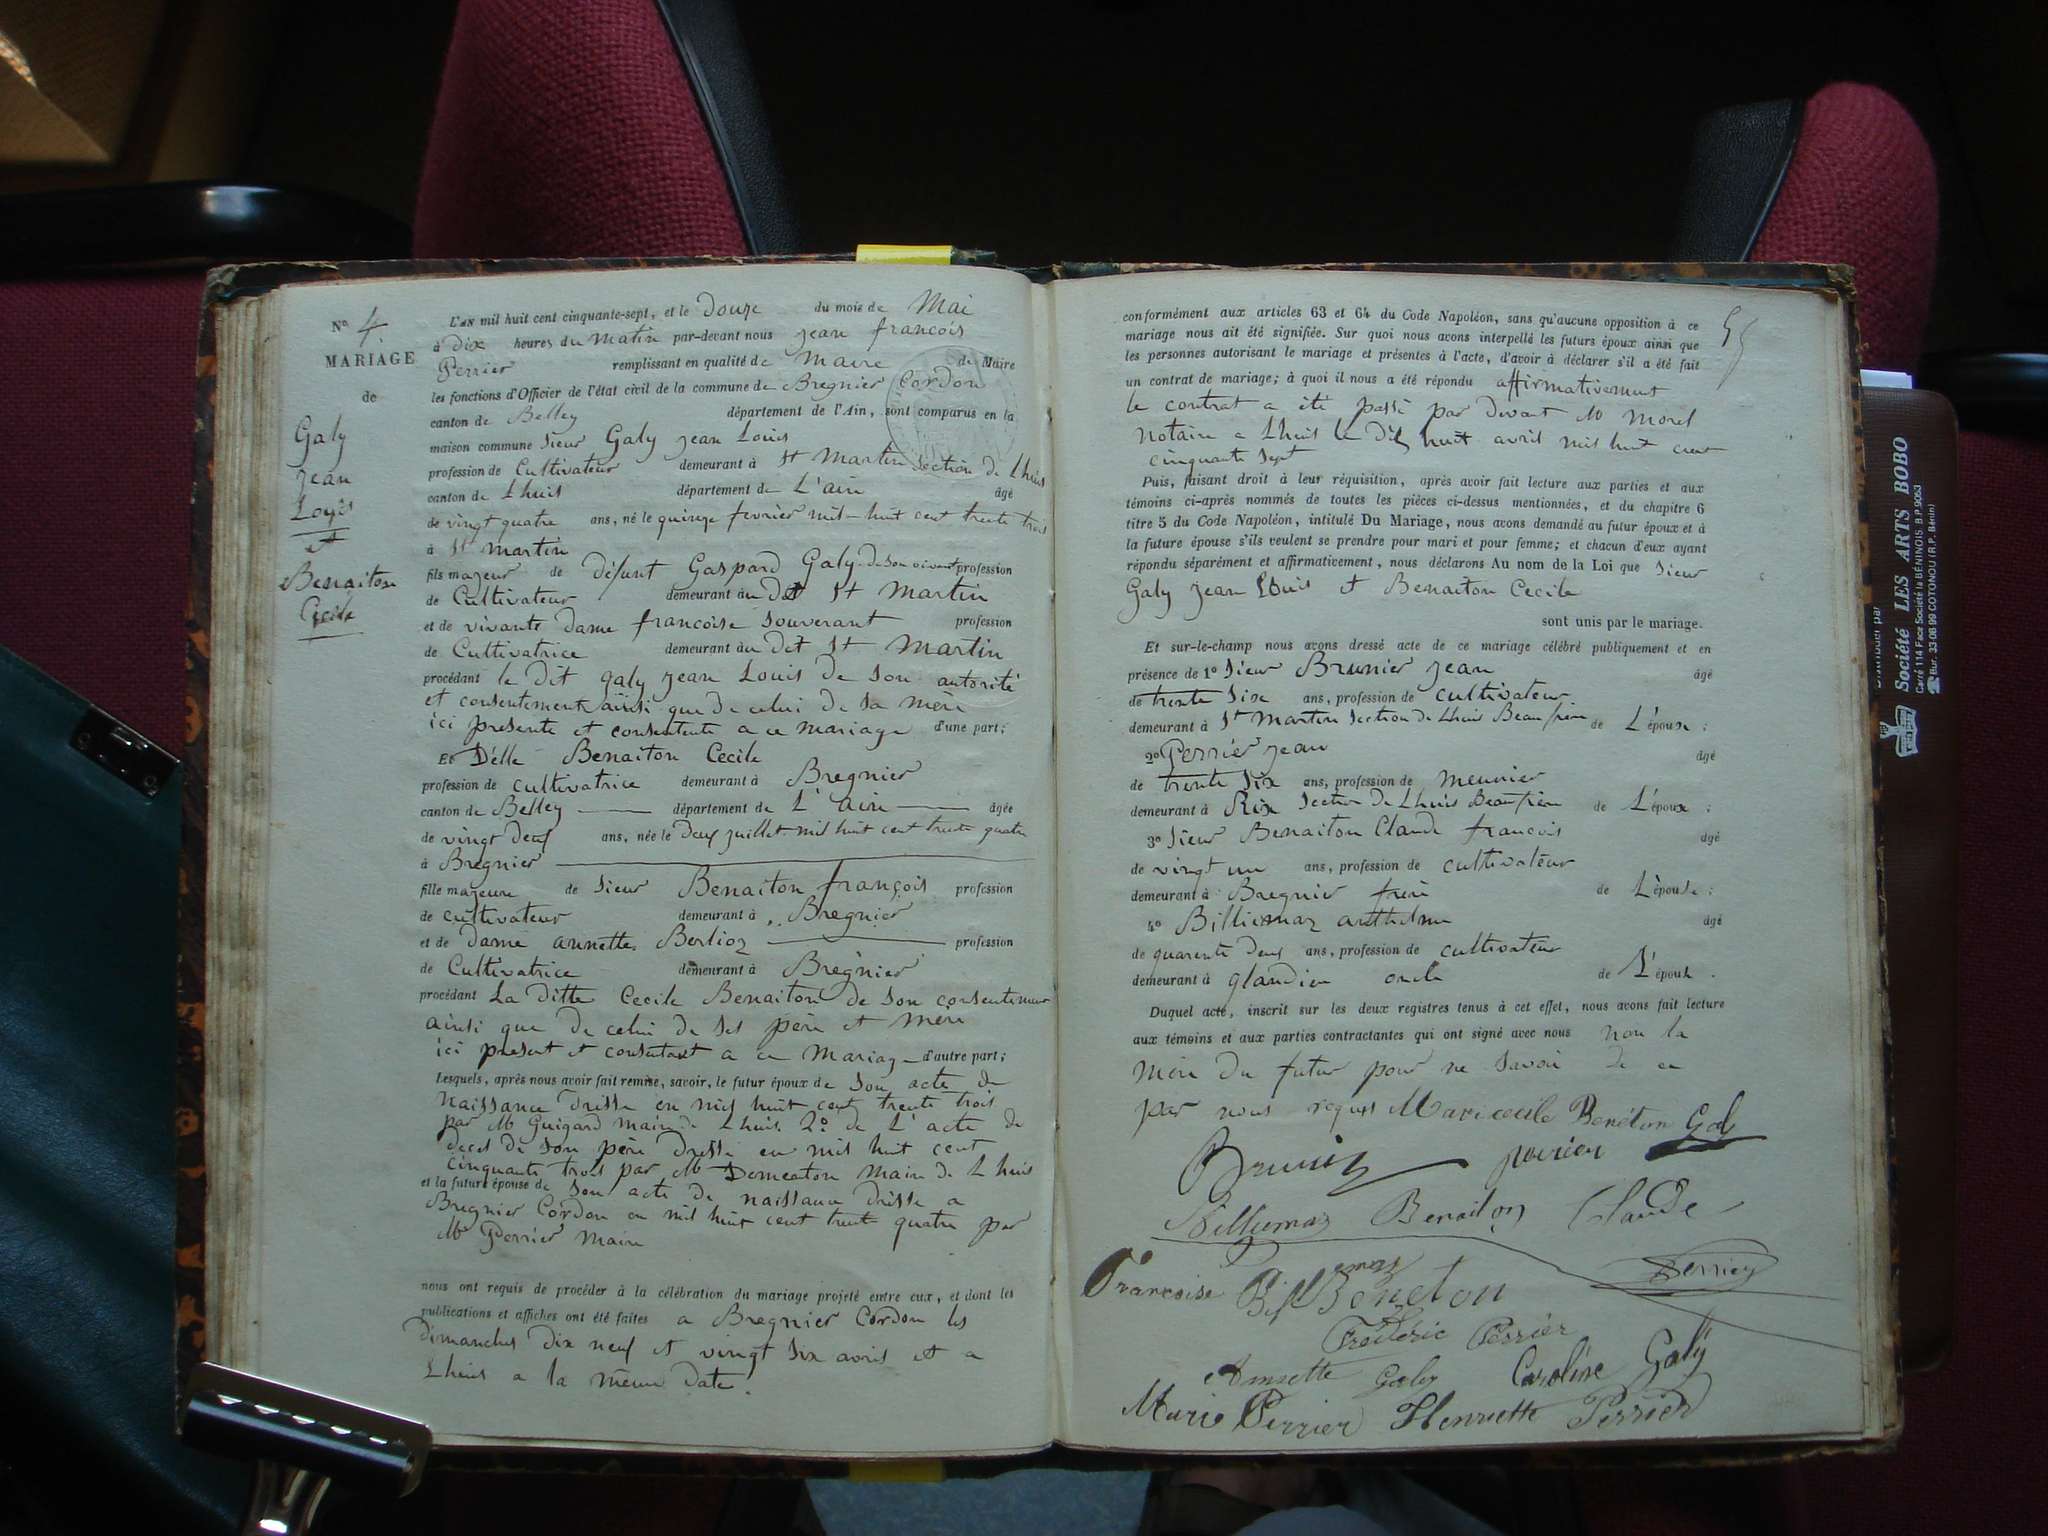 N° 4.
MARIAGE
de
Galy
Jean
Louis
et
Benaiton
Cecile
L'AN mil huit cent cinquante-sept, et le douze du mois de Mai
à dix heures du matin par-devant nous jean françois
Perrier remplissant en qualité de maire de Maire
les fonctions d'Officier de l'état civil de la commune de Bregnier Cordon
canton de Belley département de l'Ain, sont comparus en la
maison commune sieur Galy jean Louis
profession de Cultivateur demeurant à St Martin section de Lhuis
canton de Lhuis département de L'ain âgé
de vingt quatre ans, né le quinze fevrier mil huit cent trente trois
à St martin
fils majeur de défunt Gaspard Galy de son vivant profession
de Cultivateur demeurant au dit St Martin
et de vivante dame françoise Souverant profession
de Cultivatrice demeurant au dit St Martin
procédant le dit galy jean Louis de son autorité
et consentement ainsi que de celui de sa mère
ici presente et consentente a ce mariage d'une part;
Et Délle Benaiton Cecile
profession de cultivatrice demeurant à Bregnier
canton de Belley département de L'ain âgée
de vingt deux ans, née le deux juillet mil huit cent trente quatre
à Bregnier
fille majeure de sieur Benaiton françois profession
de cultivateur demeurant à Bregnier
et de dame annette Berlioz profession
de Cultivatrice demeurant à Bregnier
procédant La ditte Cecile Benaiton de son consentement
ainsi que de celui de ses père et mère
ici present et consentant a ce mariage d'autre part;
Lesquels, après nous avoir fait remise, savoir, le futur époux de son acte de
naissance dressé en mil huit cent trente trois
par Mr Guigard maire de Lhuis 2° de L'acte de
deces de son père dressé en mil huit cent
cinquante trois par Mr maire de Lhuis
et la future épouse de son acte de naissance dressé a
Bregnier Cordon en mil huit cent trente quatre par
Mr Perrier maire
nous ont requis de procéder à la célébration du mariage projeté entre eux, et dont les
publications et affiches ont été faites a Bregnier Cordon les
dimanches dix neuf et vingt six avril et a
Lhuis a la même date.
conformément aux articles 63 et 64 du Code Napoléon, sans qu'aucune opposition à ce
mariage nous ait été signifiée. Sur quoi nous avons interpellé les futurs époux ainsi que
les personnes autorisant le mariage et présentes à l'acte, d'avoir à déclarer s'il a été fait
un contrat de mariage; à quoi il nous a été répondu affirmativement
le contrat a été passé par devant Mr morel
notaire a Lhuis le dix huit avril mil huit cent
cinquante sept
Puis, faisant droit à leur réquisition, après avoir fait lecture aux parties et aux
témoins ci-après nommés de toutes les pièces ci-dessus mentionnées, et du chapitre 6
titre 5 du Code Napoléon, intitulé Du Mariage, nous avons demandé au futur époux et à
la future épouse s'ils veulent se prendre pour mari et pour femme; et chacun d'eux ayant
répondu séparément et affirmativement, nous déclarons Au nom de la Loi que sieur
Galy jean Louis et Benaiton Cecile
sont unis par le mariage.
Et sur-le-champ nous avons dressé acte de ce mariage célébré publiquement et en
présence de 1° sieur Brunier jean âgé
de trente six ans, profession de cultivateur
demeurant à St Martin section de Lhuis Beaufrère de L'époux ;
2° Perrier jean âgé
de trente six ans, profession de meunier
demeurant à Rix section de Lhuis Beaufrère de L'époux ;
3° sieur Benaiton Claude françois âgé
de vingt un ans, profession de cultivateur
demeurant à Bregnier frère de L'épouse ;
4° Billiemaz anthelme âgé
de quarente deux ans, profession de cultivateur
demeurant à glandieu oncle de L'épouse.
Duquel acte, inscrit sur les deux registres tenus à cet effet, nous avons fait lecture
aux témoins et aux parties contractantes qui ont signé avec nous non la
mère du futur pour ne savoir de ce
par nous requis Mari cecile Benéton Galy
Brunier perrier
Billiemaz Benaiton Claude
Perrier
Françoise Billiemaz Beneton
Fréderic Perrier
Annette Galy Caroline Galÿ
Marie Perrier Henriette Perrier
Distribuer par
Société LES ARTS BOBO
Carré 114 Face Société la BÉNINOIS B.P. 9053
Bur. 33 08 99 COTONOU (R.P. Bénin)